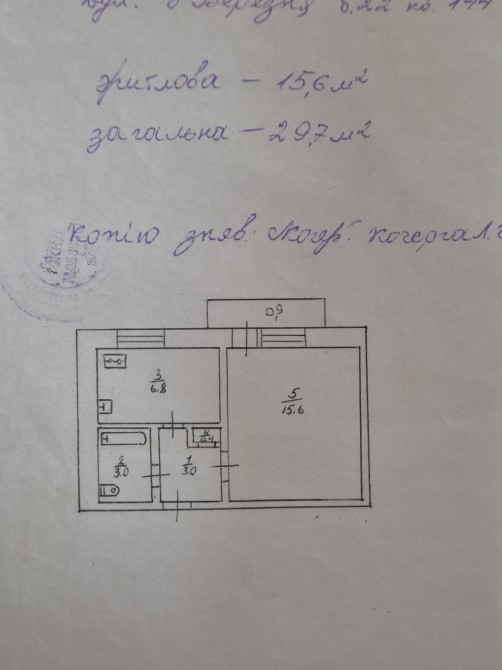 вул. 8 Березня б.22 кв. 144
житлова – 15,6 м²
загальна – 29,7 м²
копію зняв:
0,9
3
6.8
5
15.6
4
0.4
2
3.0
1
3.0